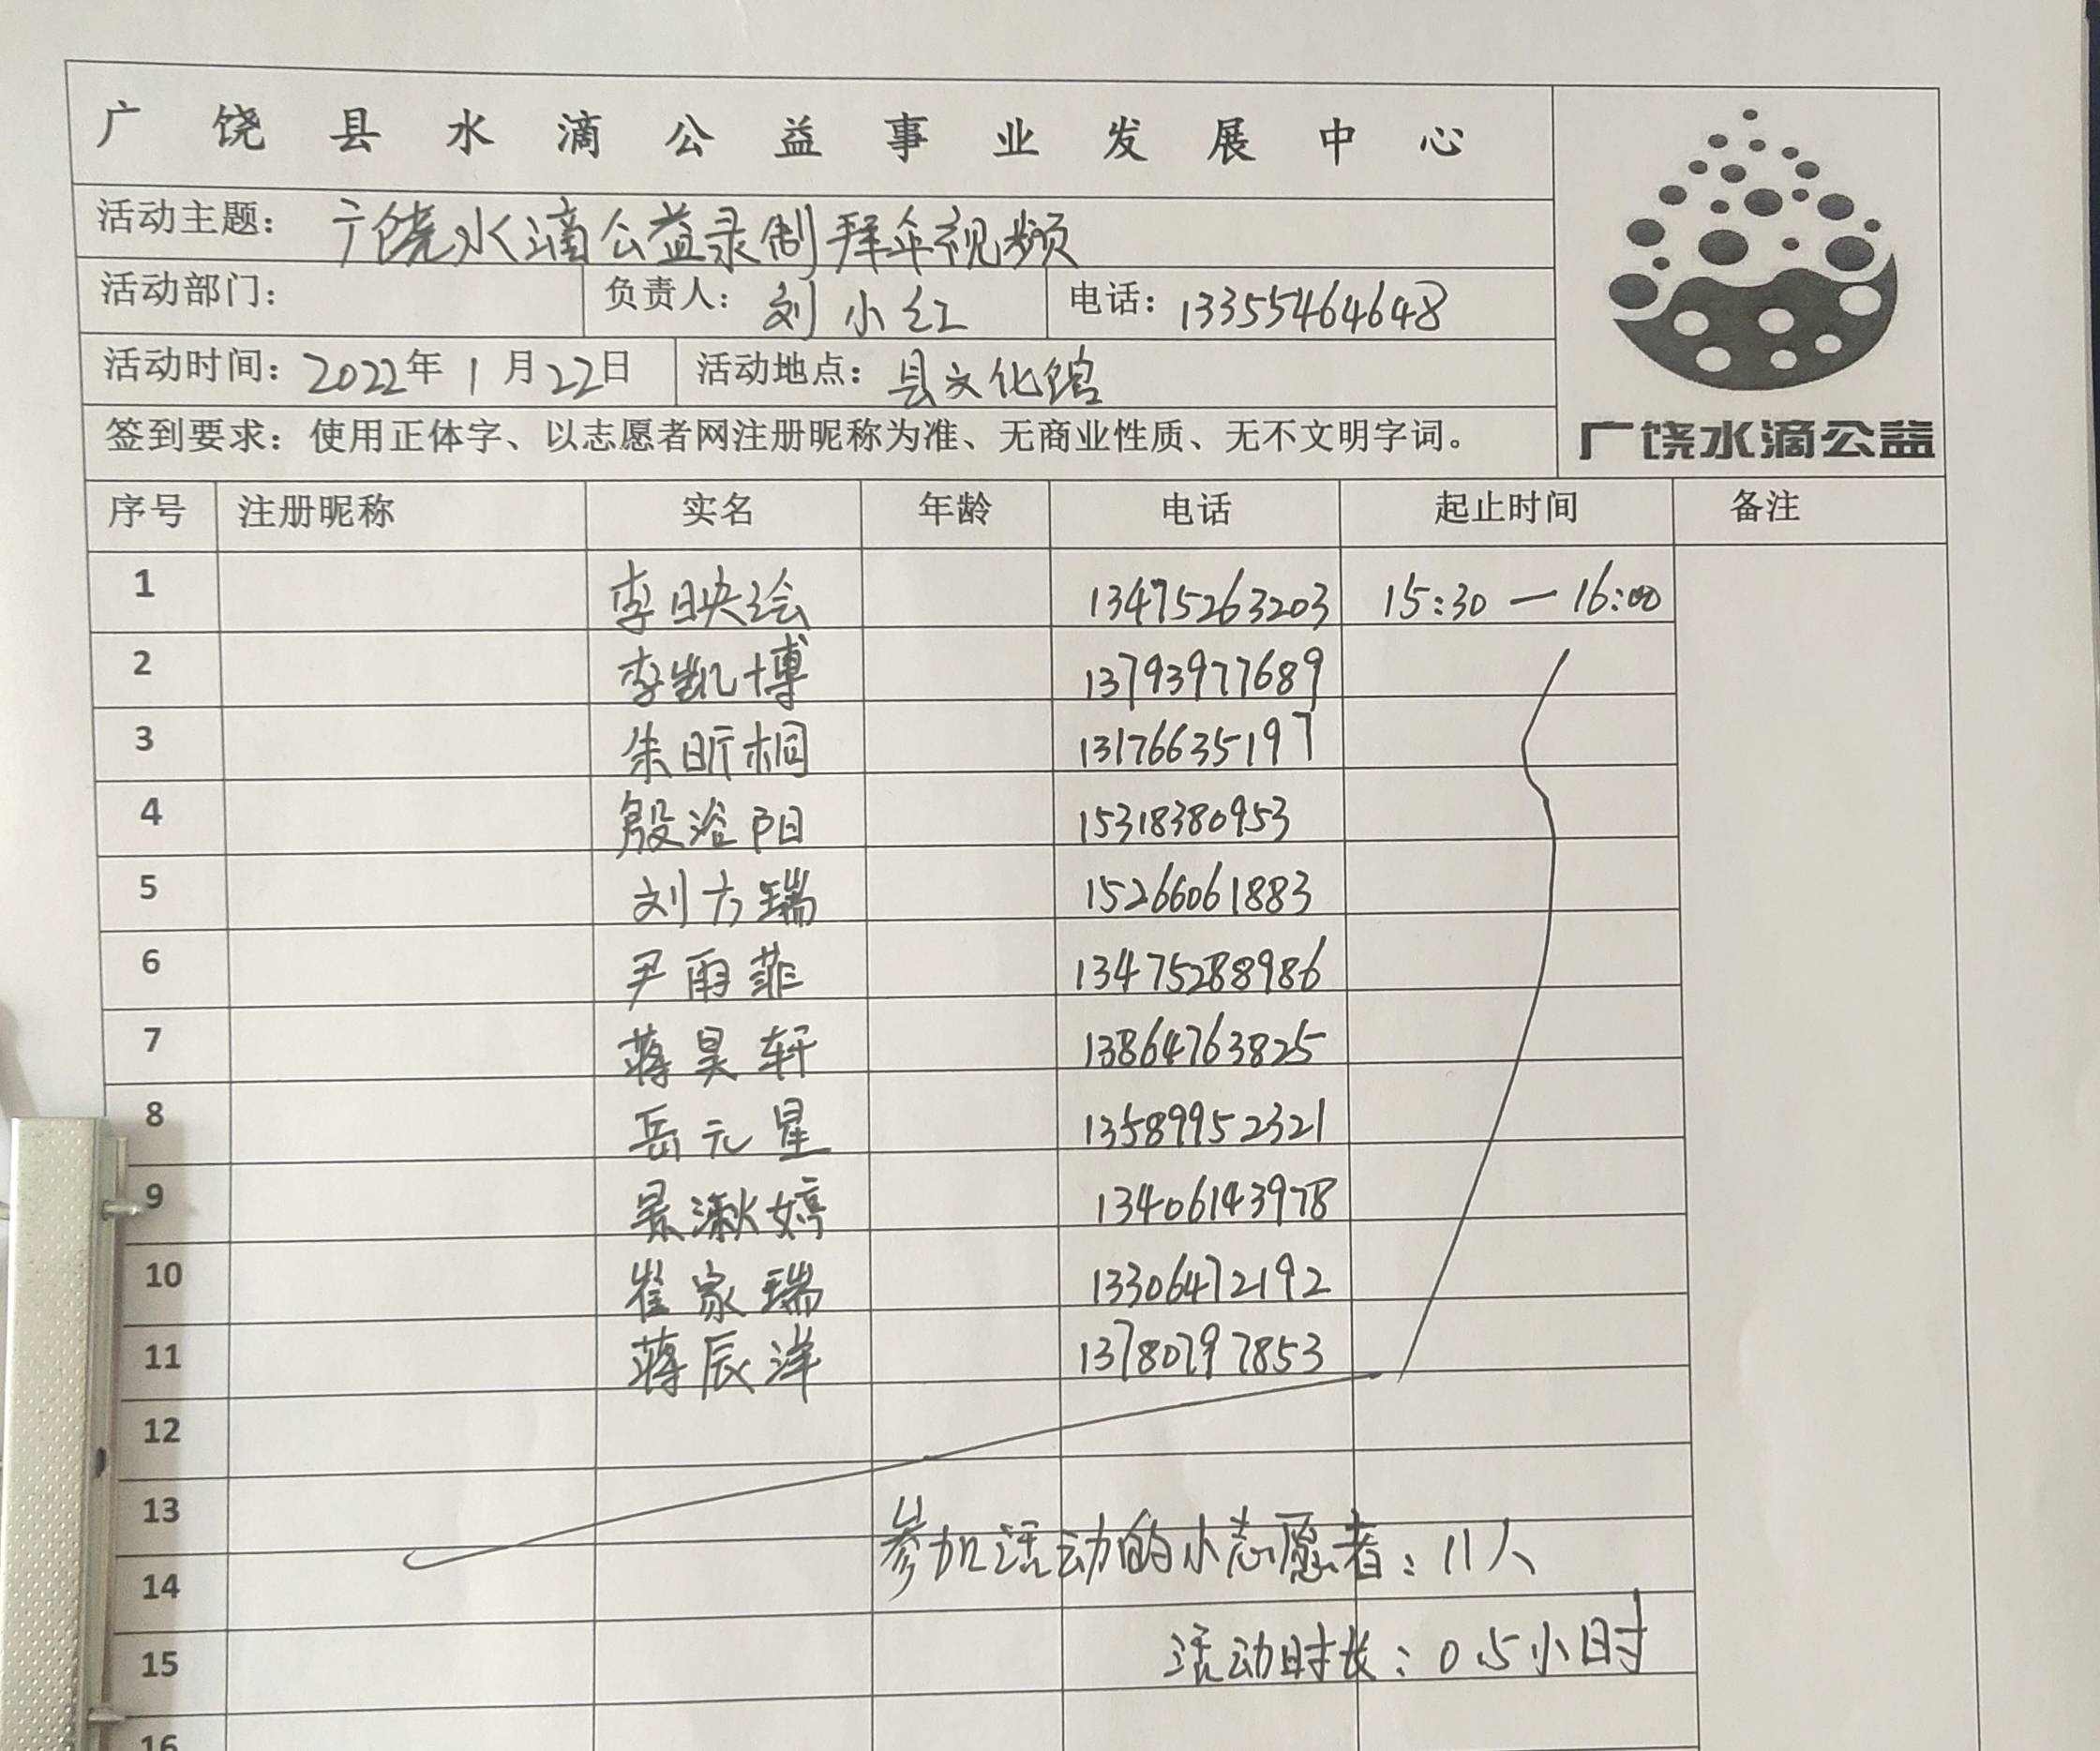 广饶县水滴公益事业发展中心
活动主题: 广饶水滴公益录制拜年视频
活动部门: 负责人: 刘小红 电话: 13355464648
活动时间: 2022年1月22日 活动地点: 县文化馆
签到要求: 使用正体字、以志愿者网注册昵称为准、无商业性质、无不文明字词。
广饶水滴公益
序号 注册昵称 实名 年龄 电话 起止时间 备注
1 李映绘 13475263203 15:30—16:00
2 李凯博 13793977689
3 朱昕桐 13176635197
4 殷浴阳 15318380953
5 刘方瑞 15266061883
6 尹雨菲 13475288986
7 蒋昊轩 13864763825
8 岳元星 13589952321
9 景潄婷 13406143978
10 崔家瑞 13306472192
11 蒋辰洋 13780797853
12
13
参加活动的小志愿者: 11人
14
15 活动时长: 0.5小时
16